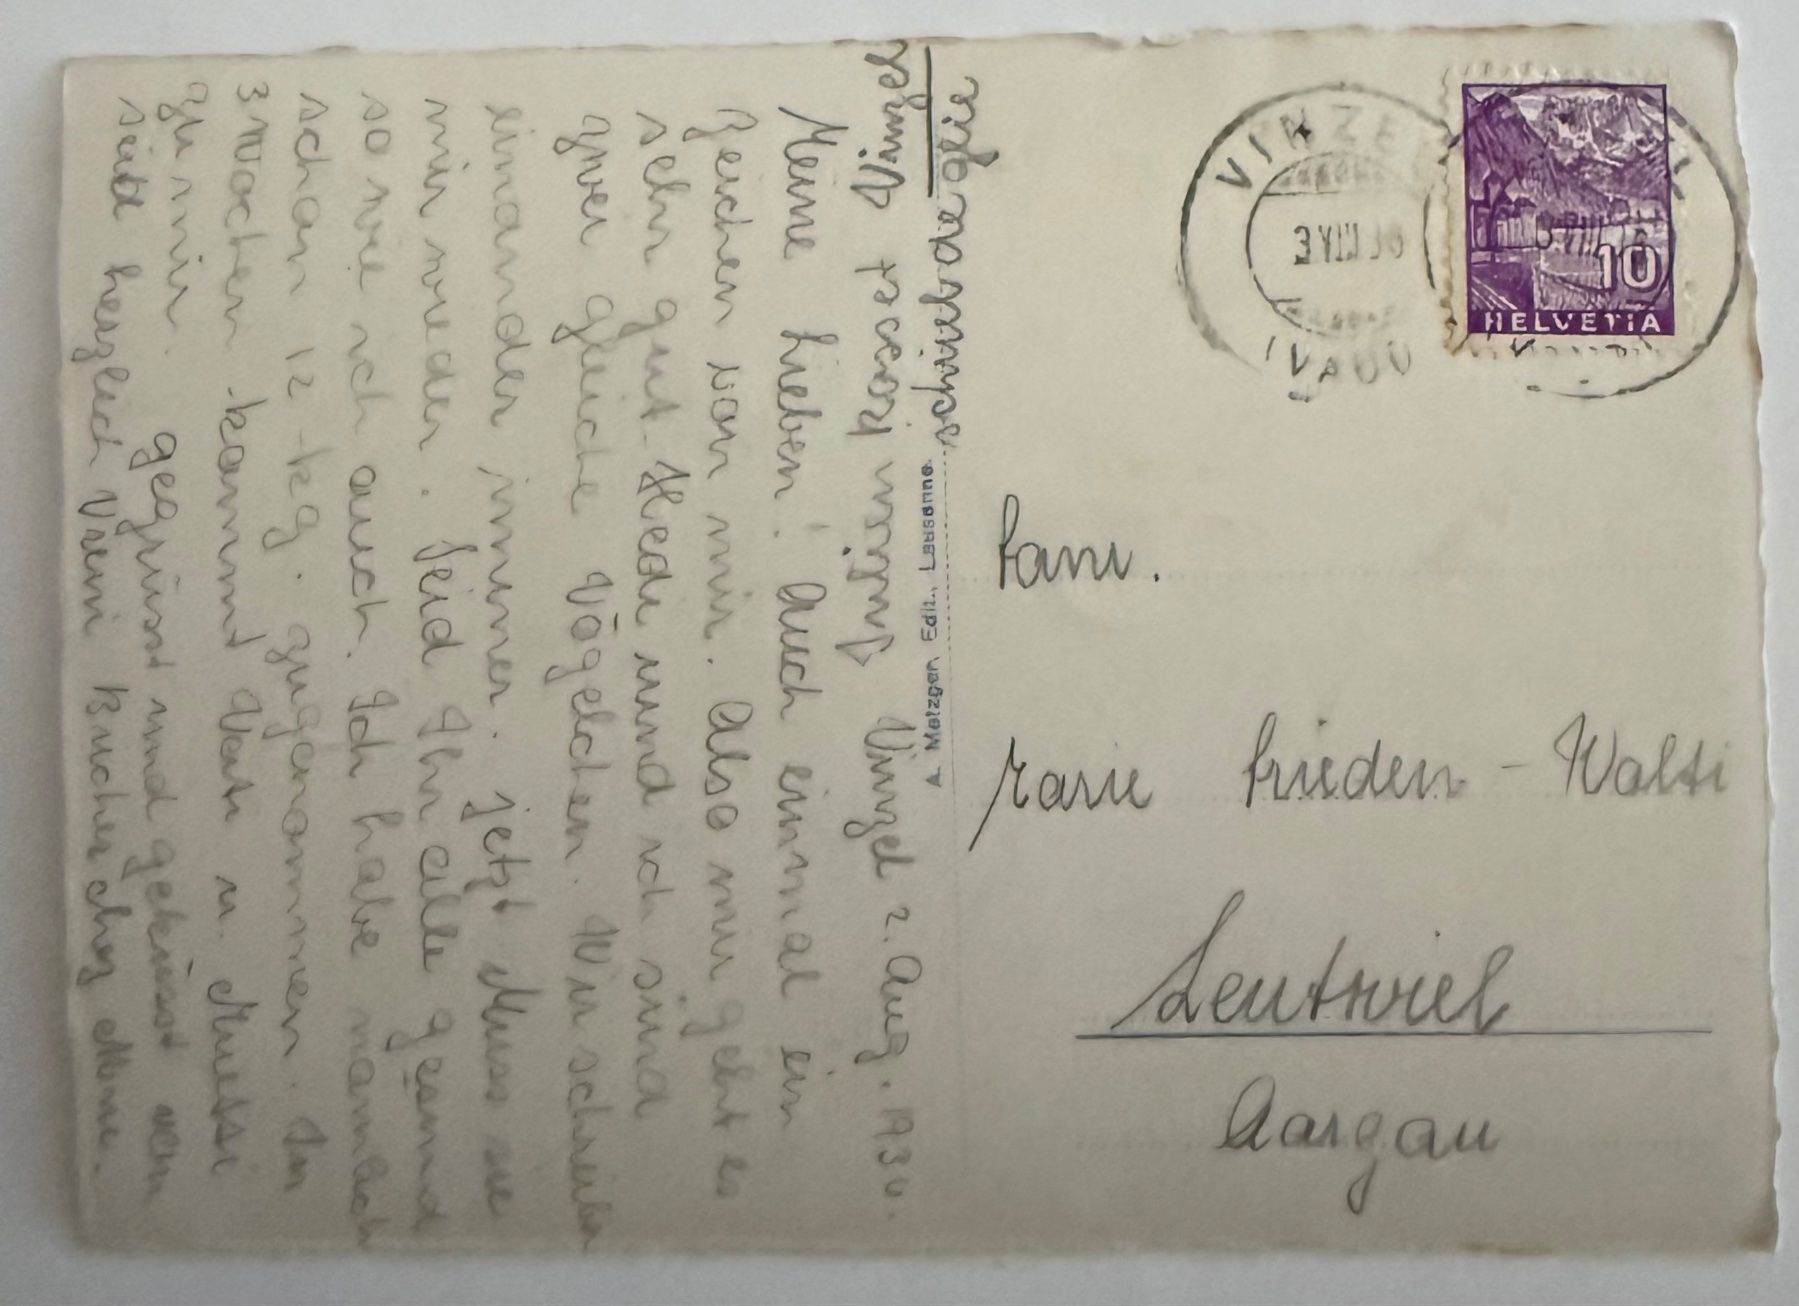 Vinzel 2. Aug. 1934.
Meine Lieben! Auch einmal ein
Zeichen von mir. Also mir geht es
sehr gut. Hedi und ich sind
zwei gleiche Vögelchen. Wir schreiben
einander immer. jetzt Muss sie
mir wieder. Seid Ihr alle gesund
so wie ich auch. Ich habe nämlich
schon 12 kg. zugenommen. In
3 Wochen kommt Vati u. Muetti
zu mir. gegrüsst und geküsst
seid herzlich Vreni
Vinzel
A. Metzger, Edit., Lausanne.
VINZEL
(VAUD)
10
HELVETIA
Fam.
Frieden - Wälti
Leutwiel
Aargau